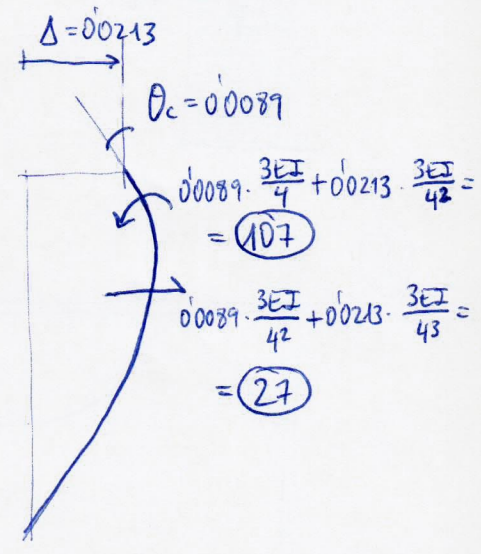 Δ = 0'0213
θc = 0'0089
0'0089 · 3EI/4 + 0'0213 · 3EI/4² =
= 107
0'0089 · 3EI/4² + 0'0213 · 3EI/4³ =
= 27